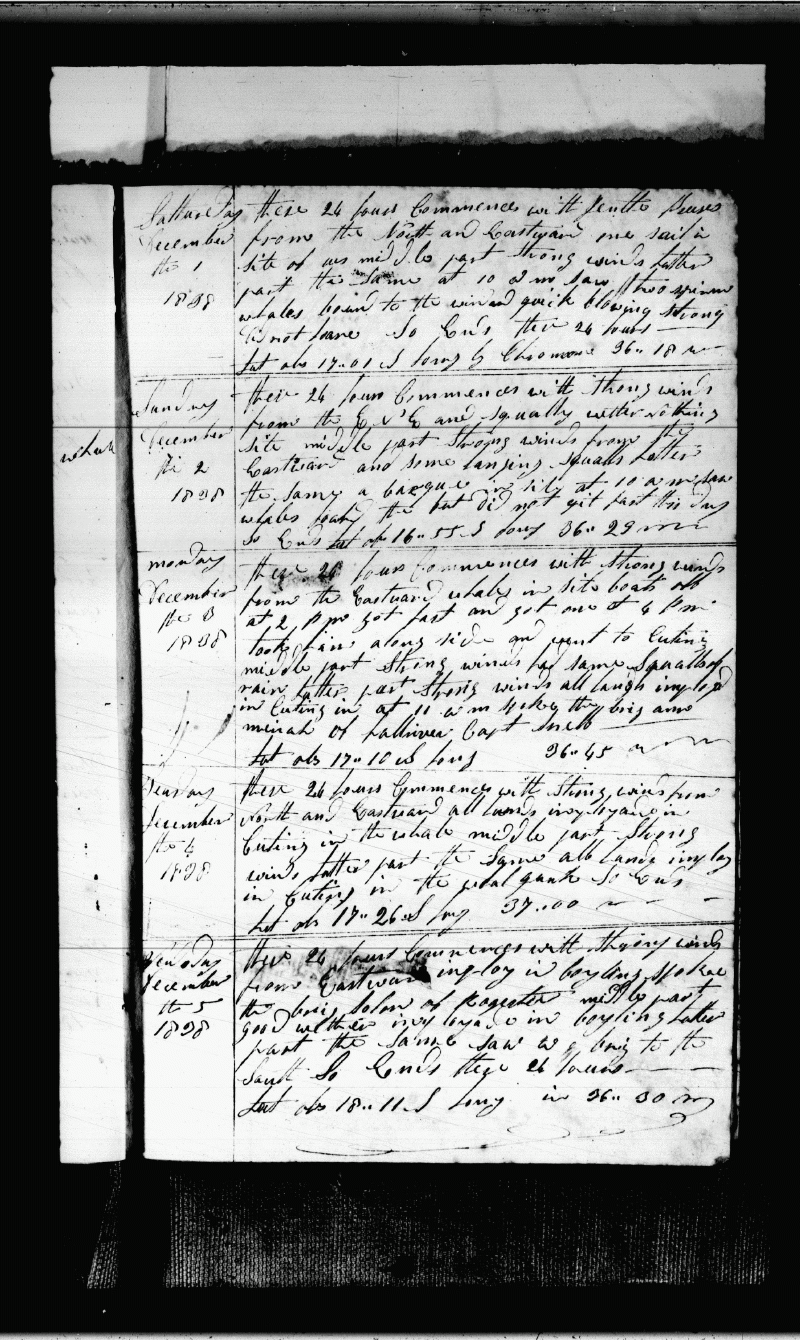 Satturday these 24 hours Commences with gentle breses
December from the North and Eastward one sail in
the 1 site of us middle part strong winds latter
1838 part the same at 10 a m saw two sperm
whales bound to the windard quick blowing strong
did not lowre So Ends these 24 hours
Lat obs 17..01 S long by Chronom 36..18
Sunday these 24 hours Commences with strong winds
December from the E N E and squally wether nothing
the 2 site middle part strong winds from the
1838 Eastward and some squals latter
the same a barque in site at 10 a m saw
whales the but did not git fast this day
So Ends Lat obs 16..55 S long 36..29
whale
monday these 24 hours Commences with strong winds
December from the Eastward whales in site boats of
the 3 at 2 P m got fast and got one at 4 P m
1838 took him along side and went to Cuting
middle part strong winds had some Squalls of
rain latter part strong winds all hands imployd
in Cuting in at 11 a m spoke the brig ame
mirah of Capt
Lat obs 17..10 S long 36..45
Teasday these 24 hours Commences with strong winds from
December North and Eastward all hands imployd in
the 4 Cuting in the whale middle part strong
1838 winds latter part the same all hands imploy
in Cuting in the So Ends
Lat obs 17..26 S long 37..00
Wensday these 24 hours Commences with strong winds
December from Eastward imploy in boyling spoke
the 5 the brig Solon of middle part
1838 good wether imployd in boyling latter
part the same saw a brig to the
South So Ends these 24 hours
Lat obs 18..11 S long in 36..30